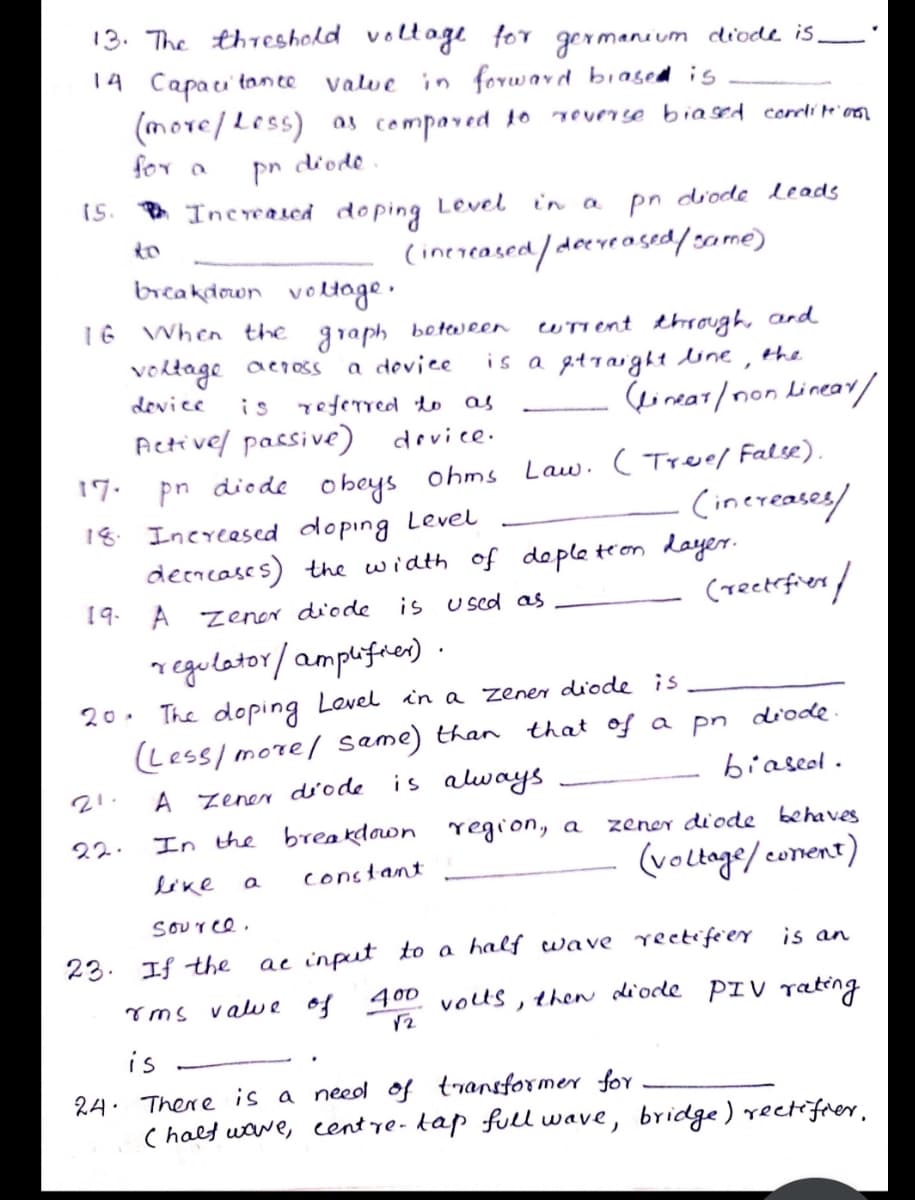 13. The threshold voltage for germanium diode is ___.
14 Capacitance value in forward biased is ______
(more/Less) as compared to reverse biased condition
for a pn diode.
15. Increased doping Level in a pn diode leads
to ______ (increased/decreased/same)
breakdown voltage.
16 When the graph between current through, and
voltage across a device is a straight line, the
device is referred to as ______ (linear/non Linear/
Active/ passive) device.
17. pn diode obeys ohms Law. (True/ False).
18. Increased doping Level ______ (increases/
decreases) the width of depletion layer.
19. A zener diode is used as ______ (rectifier/
regulator/amplifier).
20. The doping Level in a zener diode is ______
(Less/more/ same) than that of a pn diode.
21. A zener diode is always ______ biased.
22. In the breakdown region, a zener diode behaves
like a constant ______ (voltage/current)
source.
23. If the ac input to a half wave rectifier is an
rms value of 400/√2 volts, then diode PIV rating
is ______.
24. There is a need of transformer for ______
(half wave, centre-tap full wave, bridge) rectifier.